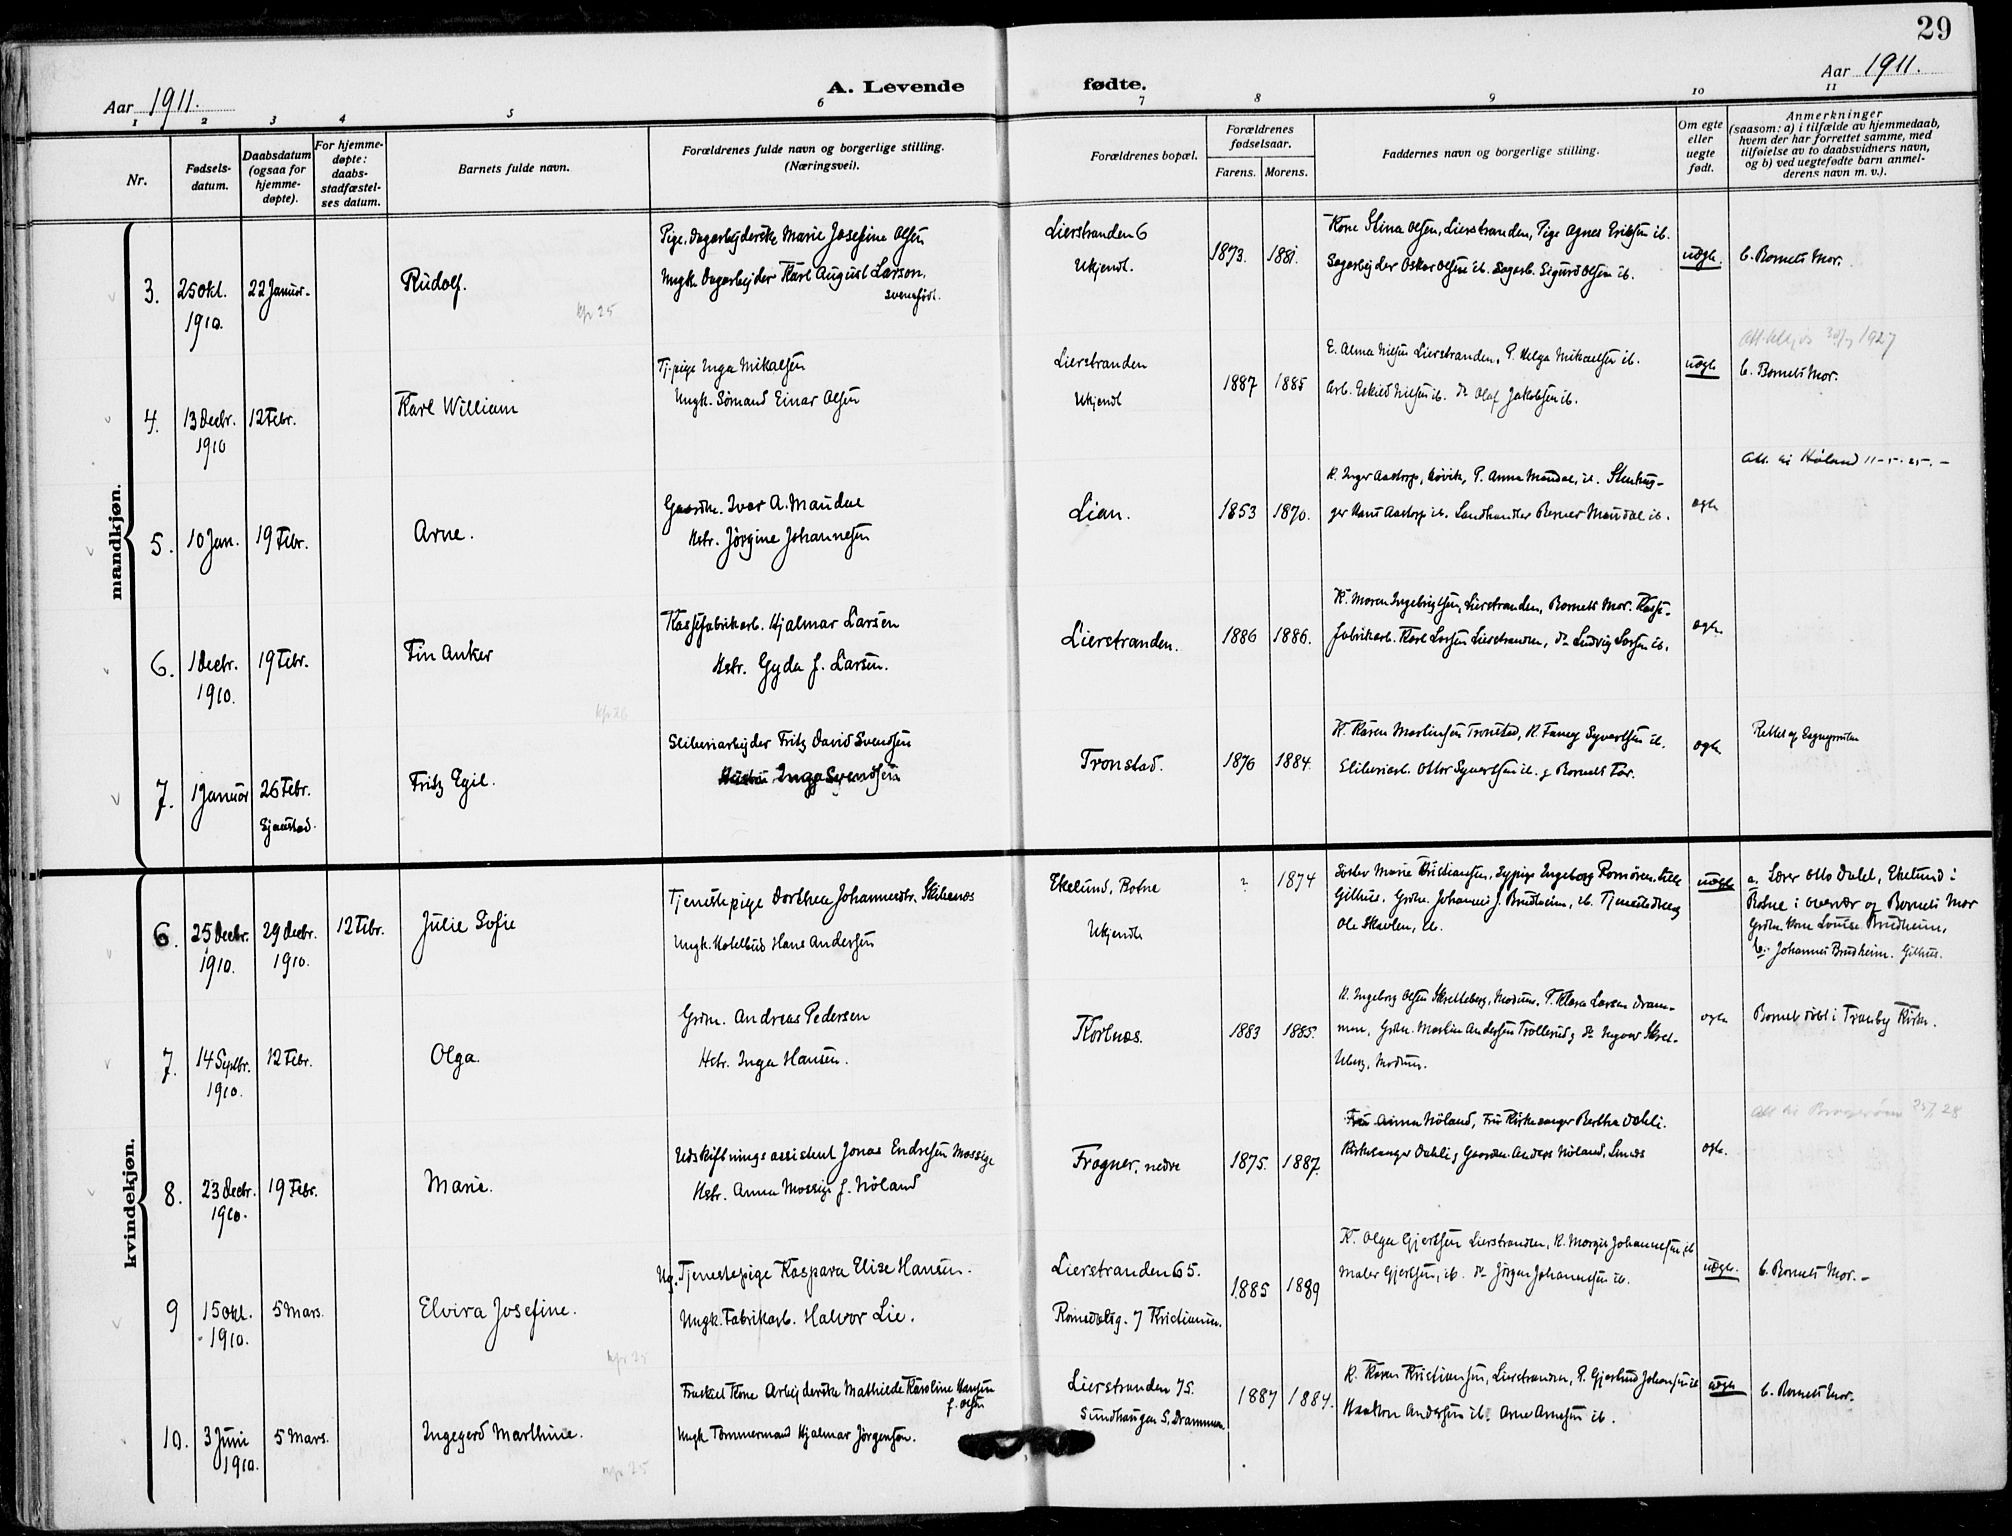 29
Aar 1911.
A. Levende fødte.
Aar 1911.
1 2 3 4 5 6 7 8 9 10 11
Nr.
Fødsels-
datum.
Daabsdatum
(ogsaa for
hjemme-
døpte).
For hjemme-
døpte:
daabs-
stadfæstel-
ses datum.
Barnets fulde navn.
Forældrenes fulde navn og borgerlige stilling.
(Næringsvei).
Forældrenes bopæl.
Forældrenes
fødselsaar.
Farens. Morens.
Faddernes navn og borgerlige stilling.
Om egte
eller
uegte
født.
Anmerkninger
(saasom: a) i tilfælde av hjemmedaab,
hvem der har forrettet samme, med
tilføielse av to daabsvidners navn,
og b) ved uegtefødte barn anmel-
derens navn m. v.).
mandkjøn.
3. 25 okt.
1910.
22 Januar.
Rudolf.
kfr 25
Pige. Dagarbejderske Marie Josefine Olsen
Ungk. Dagarbejder Karl August Larson.
svenskfødt.
Lierstranden 6
Ukjendt.
1873. 1881.
Kone Stina Olsen, Lierstranden, Pige Agnes Eriksen ib.
Sagarbejder Oskar Olsen ib. Sagarb. Sigurd Olsen ib.
uægte.
b. Barnets Mor.
4. 13 Decbr.
1910
12 Febr.
Karl William
Tj.pige Inga Mikalsen
Ungk. Sømand Einar Olsen
Lierstranden
Ukjendt
1887 1885
E. Alma Nilsen Lierstranden, P. Helga Mikaelsen ib.
Arb. Eskild Nilsen ib. Do Olaf Jakobsen ib.
uægte
1927
b. Barnets Mor.
5. 10 Jan.
19 Febr.
Arne.
Gaardbr. Ivar A. Maudal
Hstr. Jørgine Johannesen
Lian.
1853 1870.
K. Inger Aastorp, P. Anna Maudal, ib. Stenhug-
ger Hans Aastorp ib. Landhandler Berner Maudal ib.
ægte
Att. til Høland 11-5-25. -
6. 1 Decbr.
1910.
19 Febr.
Fin Anker
kfr 26
Kassefabrikarb. Hjalmar Larsen
Hstr. Gyda f. Larsen.
Lierstranden.
1886 1886.
K. Maren Ingebrigtsen, Lierstranden, Barnets Mor. Kasse-
fabrikarb. Karl Larsen Lierstranden, Do Ludvig Larsen ib.
ægte.
7. 1 Januar
26 Febr.
Sjaastad.
Fritz Egil.
Sliberiarbejder Fritz David Svendsen
Hustru Inga Svendsen
Tronstad.
1876 1884.
K. Karen Martinsen Tronstad, K. Fanny Syvertsen ib.
Sliberiarb. Ottar Syvertsen ib. & Barnets Far.
ægte
kvindekjøn.
6. 25 Decbr.
1910.
29 Decbr.
1910.
12 Febr.
Julie Sofie
Tjenestepige Dorthea Johannesdtr. Skihenæs
Ungk. Hotelbud Hans Andersen
Ekelund, Botne
Ukjendt
? 1874
Søster Marie Kristiansen, Sypige Ingeborg Romøren, Lille
Gilhus. Grdbr. Johannes J. Brudheim, ib. Tjenestedreng
Ole Skavlen, ib.
uægte
a. Lærer Otto Dahl, Ekelund i
Botne i overvær av Barnets Mor
Grdbr. Kone Lovise Brudheim,
b. Johannes Brudheim. Gilhus.
7. 14 Septbr.
1910.
12 Febr.
Olga.
Grdbr. Andreas Pedersen
Hstr. Inga Hansen.
Kortnæs.
1883 1885.
K. Ingeborg Olsen Skretteberg, Modum. P. Klara Larsen Dram-
men, Grdbr. Martin Andersen Trollerud, Do Ingvar Skret-
teberg, Modum.
ægte
Barnet døbt i Tranby Kirke.
8. 23 Decbr.
1910.
19 Febr.
Marie.
Udskiftningsassistent Jonas Endresen Mossige
Hstr. Anna Mossige f. Høland
Frogner, nedre
1875. 1887.
Fru Anna Høland, Fru Kirkesanger Bertha Dæhli.
Kirkesanger Dæhli, Gaardbr. Anders Høland,
ægte.
9 15 okt.
1910.
5 Mars.
Elvira Josefine.
kfr 25
Ug. Tjenestepige Kaspara Elise Hansen.
Ungk. Fabrikarb. Halvor Lie.
Lierstranden 65.
Romsdalsg. 7 Kristiania.
1885 1889
K. Olga Gjertsen Lierstranden, K. Margit Johannesen, ib
Maler Gjertsen, ib. Do Jørgen Johannesen ib.
uægte.
b. Barnets Mor. -
10. 3 Juni
1910.
5 Mars.
Ingegerd Marthine.
25
Fraskilt Kone Arbejderske Mathilde Karoline Hansen
f. Olsen
Ungk Tømmermand Hjalmar Jørgensen.
Lierstranden 75.
Sundhaugen 5. Drammen.
1887 1884.
K. Karen Kristiansen, Lierstranden, P. Gjertrud Johansen ib
Haakon Andersen ib. Arne Arnesen ib.
uægte
b. Barnets Mor.